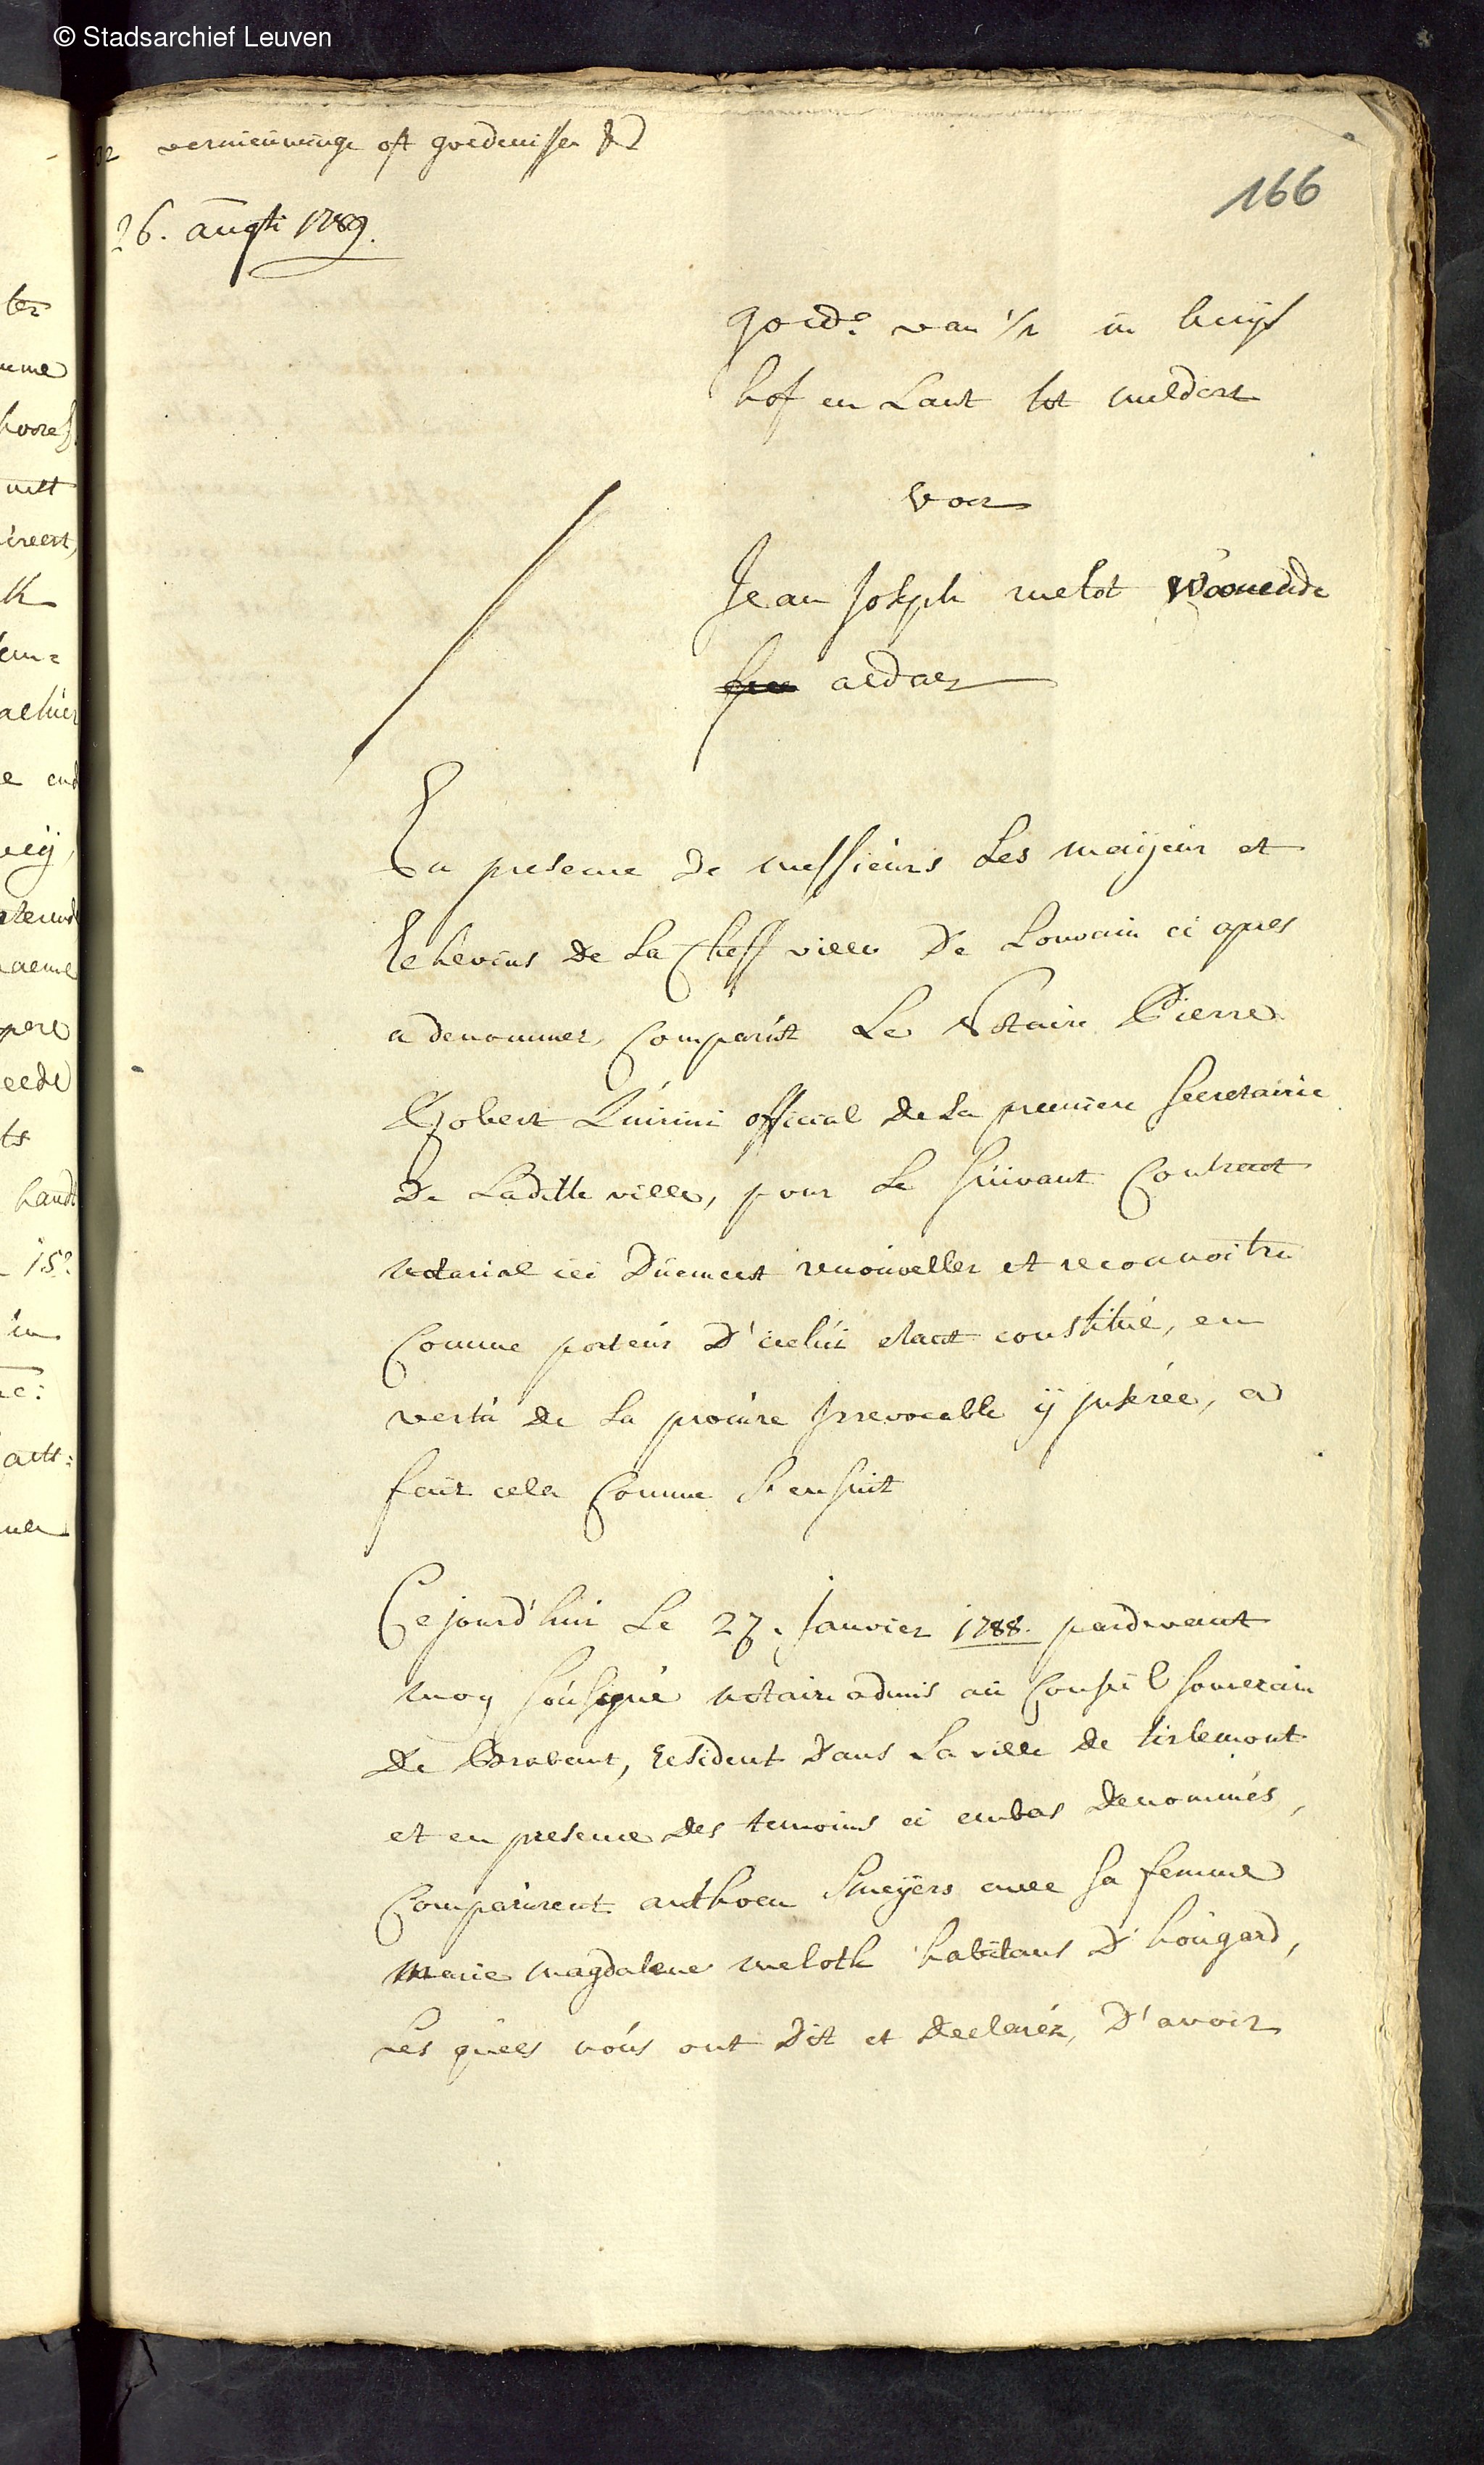 © Stadsarchief Leuven
vernieuwinge oft goedenisse &
166
26. augti 1789.
goede van 1/2 in huijs
hof en Lant tot meldert
voor
Jean Joseph melot woonende
aldaer
En presence de messieurs Les maijeur et
Echevins de La Cheff ville De Louvain ci apres
a denommer, Comparút Le Notaire Pierre
Robert Quirini official de La premiere secretairie
De Laditte ville, pour Le suivant Contract
notarial ici Duement renouveller et reconnoitre
Comme porteur D'icelui etant constitué, en
vertu de La procure Irrevocable ÿ inserée, a
fair cela Comme S'ensuit
Cejourd'hui Le 27. Janvier 1788. pardevant
moy sousigné notaire admis au Conseil souverain
De Brabant, resident Dans La ville de tirlemont
et en presence des temoins ci embas Denommés,
Comparurent anthoen Smeÿers avec sa femme
marie magdalene meloth habitans D'hougard,
Les quels nous ont Dit et Declaréz, D'avoir
ter
eert,
pere
eede
ts
handt
in